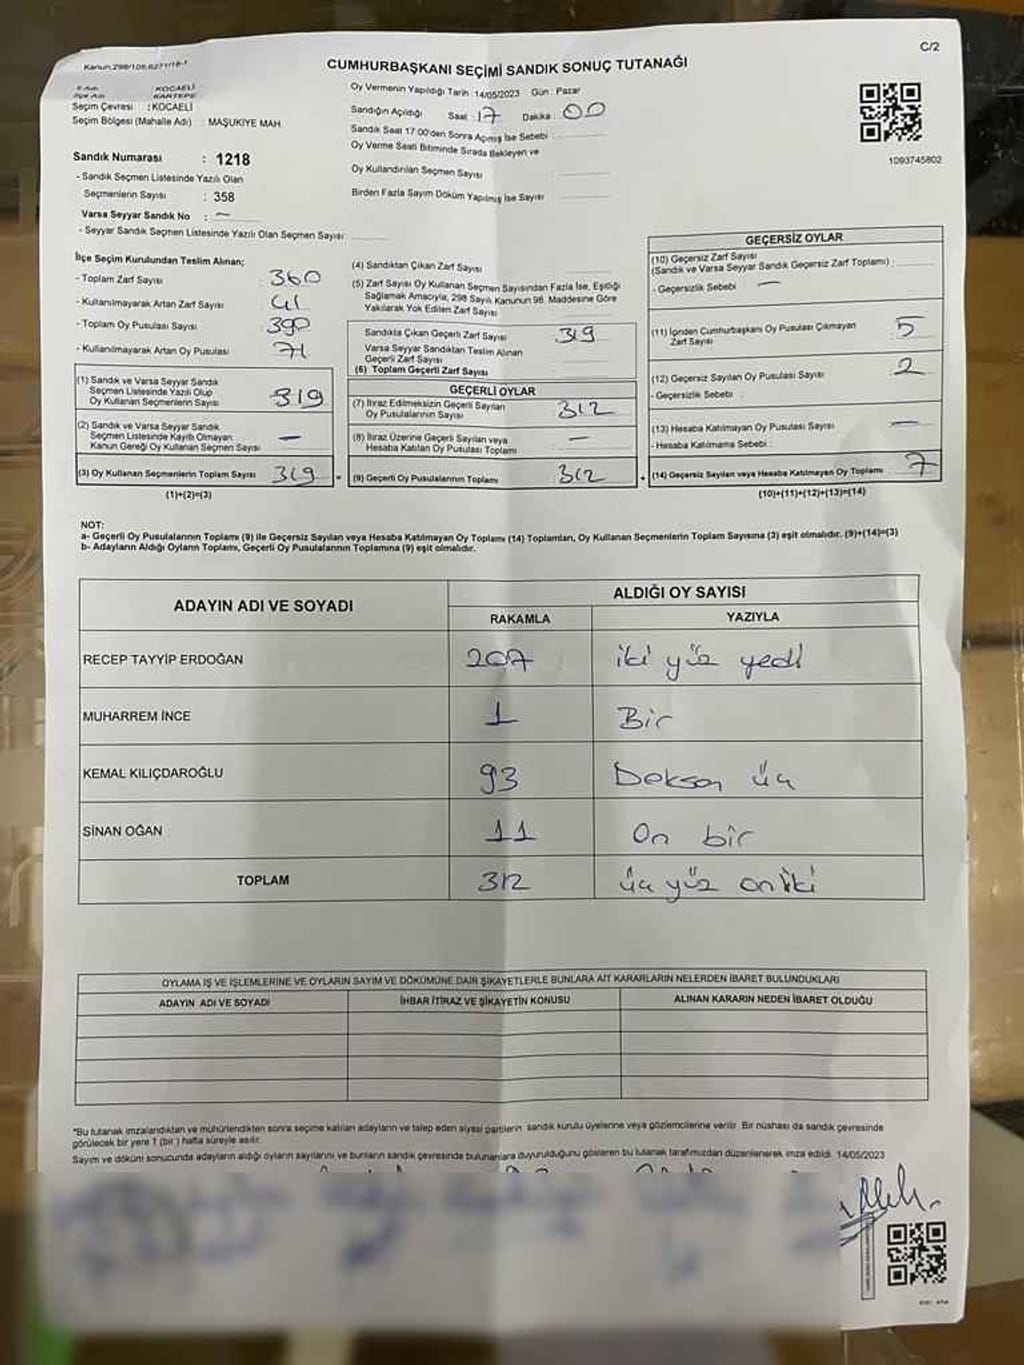 C/2
Kanun:298/105,6271/18-1
CUMHURBAŞKANI SEÇİMİ SANDIK SONUÇ TUTANAĞI
İl Adı : KOCAELİ
İlçe Adı : KARTEPE
Seçim Çevresi : KOCAELİ
Seçim Bölgesi (Mahalle Adı) : MAŞUKİYE MAH.
Sandık Numarası : 1218
- Sandık Seçmen Listesinde Yazılı Olan
Seçmenlerin Sayısı : 358
Varsa Seyyar Sandık No : —
- Seyyar Sandık Seçmen Listesinde Yazılı Olan Seçmen Sayısı:
Oy Vermenin Yapıldığı Tarih :14/05/2023 Gün : Pazar
Sandığın Açıldığı Saat : 17 Dakika : 00
Sandık Saat 17:00'den Sonra Açılmış İse Sebebi :
Oy Verme Saati Bitiminde Sırada Bekleyen ve
Oy Kullandırılan Seçmen Sayısı :
Birden Fazla Sayım Döküm Yapılmış İse Sayısı :
1093745802
İlçe Seçim Kurulundan Teslim Alınan;
- Toplam Zarf Sayısı : 360
- Kullanılmayarak Artan Zarf Sayısı : 41
- Toplam Oy Pusulası Sayısı : 390
- Kullanılmayarak Artan Oy Pusulası : 71
(1) Sandık ve Varsa Seyyar Sandık
Seçmen Listesinde Yazılı Olup
Oy Kullanan Seçmenlerin Sayısı : 319
(2) Sandık ve Varsa Seyyar Sandık
Seçmen Listesinde Kayıtlı Olmayan
Kanun Gereği Oy Kullanan Seçmen Sayısı : —
(3) Oy Kullanan Seçmenlerin Toplam Sayısı 319 =
(1)+(2)=(3)
(4) Sandıktan Çıkan Zarf Sayısı
(5) Zarf Sayısı Oy Kullanan Seçmen Sayısından Fazla İse, Eşitliği
Sağlamak Amacıyla, 298 Sayılı Kanunun 98. Maddesine Göre
Yakılarak Yok Edilen Zarf Sayısı
Sandıkta Çıkan Geçerli Zarf Sayısı 319
Varsa Seyyar Sandıktan Teslim Alınan
Geçerli Zarf Sayısı
(6) Toplam Geçerli Zarf Sayısı
GEÇERLİ OYLAR
(7) İtiraz Edilmeksizin Geçerli Sayılan
Oy Pusulalarının Sayısı 312
(8) İtiraz Üzerine Geçerli Sayılan veya
Hesaba Katılan Oy Pusulası Toplamı —
(9) Geçerli Oy Pusulalarının Toplamı 312 +
GEÇERSİZ OYLAR
(10) Geçersiz Zarf Sayısı
(Sandık ve Varsa Seyyar Sandık Geçersiz Zarf Toplamı) :
- Geçersizlik Sebebi : —
(11) İçinden Cumhurbaşkanı Oy Pusulası Çıkmayan
Zarf Sayısı 5
(12) Geçersiz Sayılan Oy Pusulası Sayısı 2
- Geçersizlik Sebebi :
(13) Hesaba Katılmayan Oy Pusulası Sayısı —
- Hesaba Katılmama Sebebi :
(14) Geçersiz Sayılan veya Hesaba Katılmayan Oy Toplamı 7
(10)+(11)+(12)+(13)=(14)
NOT:
a- Geçerli Oy Pusulalarının Toplamı (9) ile Geçersiz Sayılan veya Hesaba Katılmayan Oy Toplamı (14) Toplamları, Oy Kullanan Seçmenlerin Toplam Sayısına (3) eşit olmalıdır. (9)+(14)=(3)
b- Adayların Aldığı Oyların Toplamı, Geçerli Oy Pusulalarının Toplamına (9) eşit olmalıdır.
ADAYIN ADI VE SOYADI ALDIĞI OY SAYISI
RAKAMLA YAZIYLA
RECEP TAYYİP ERDOĞAN 207 iki yüz yedi
MUHARREM İNCE 1 Bir
KEMAL KILIÇDAROĞLU 93 Doksan üç
SİNAN OĞAN 11 On bir
TOPLAM 312 üç yüz on iki
OYLAMA İŞ VE İŞLEMLERİNE VE OYLARIN SAYIM VE DÖKÜMÜNE DAİR ŞİKAYETLERLE BUNLARA AİT KARARLARIN NELERDEN İBARET BULUNDUKLARI
ADAYIN ADI VE SOYADI İHBAR İTİRAZ VE ŞİKAYETİN KONUSU ALINAN KARARIN NEDEN İBARET OLDUĞU
*Bu tutanak imzalandıktan ve mühürlendikten sonra seçime katılan adayların ve talep eden siyasi partilerin sandık kurulu üyelerine veya gözlemcilerine verilir. Bir nüshası da sandık çevresinde
görülecek bir yere 1 (bir) hafta süreyle asılır.
Sayım ve döküm sonucunda adayların aldığı oyların sayılarını ve bunların sandık çevresinde bulunanlara duyurulduğunu gösteren bu tutanak tarafımızdan düzenlenerek imza edildi. 14/05/2023